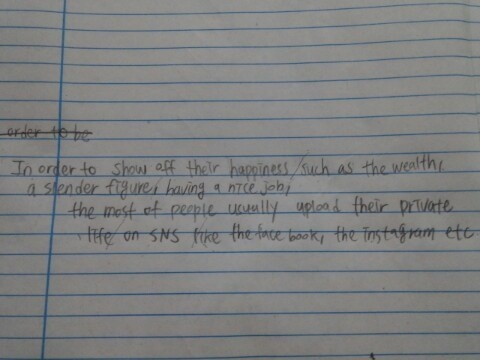 order to be
In order to show off their happiness, such as the wealth,
a slender figure, having a nice job,
the most of people usually upload their private
life on SNS like the face book, the instagram etc